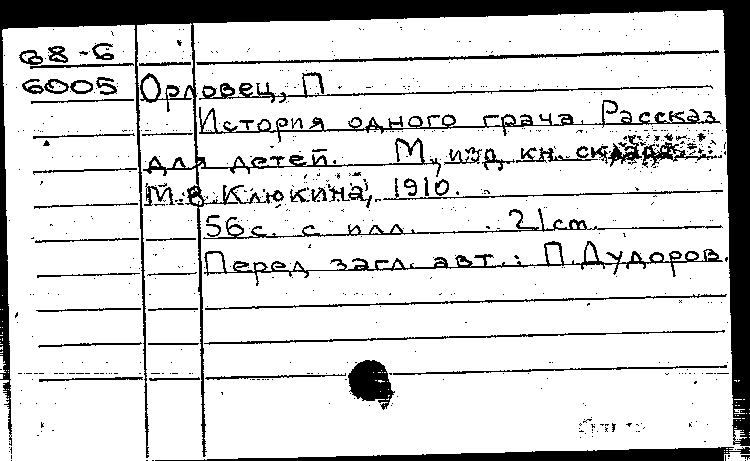 68-6
6005 Орловец, П
История одного грача. Рассказ
для детей. М., изд. кн. склада
М.В. Клюкина, 1910.
56с. с илл. 21cm.
Перед загл. авт.: П. Дудоров.